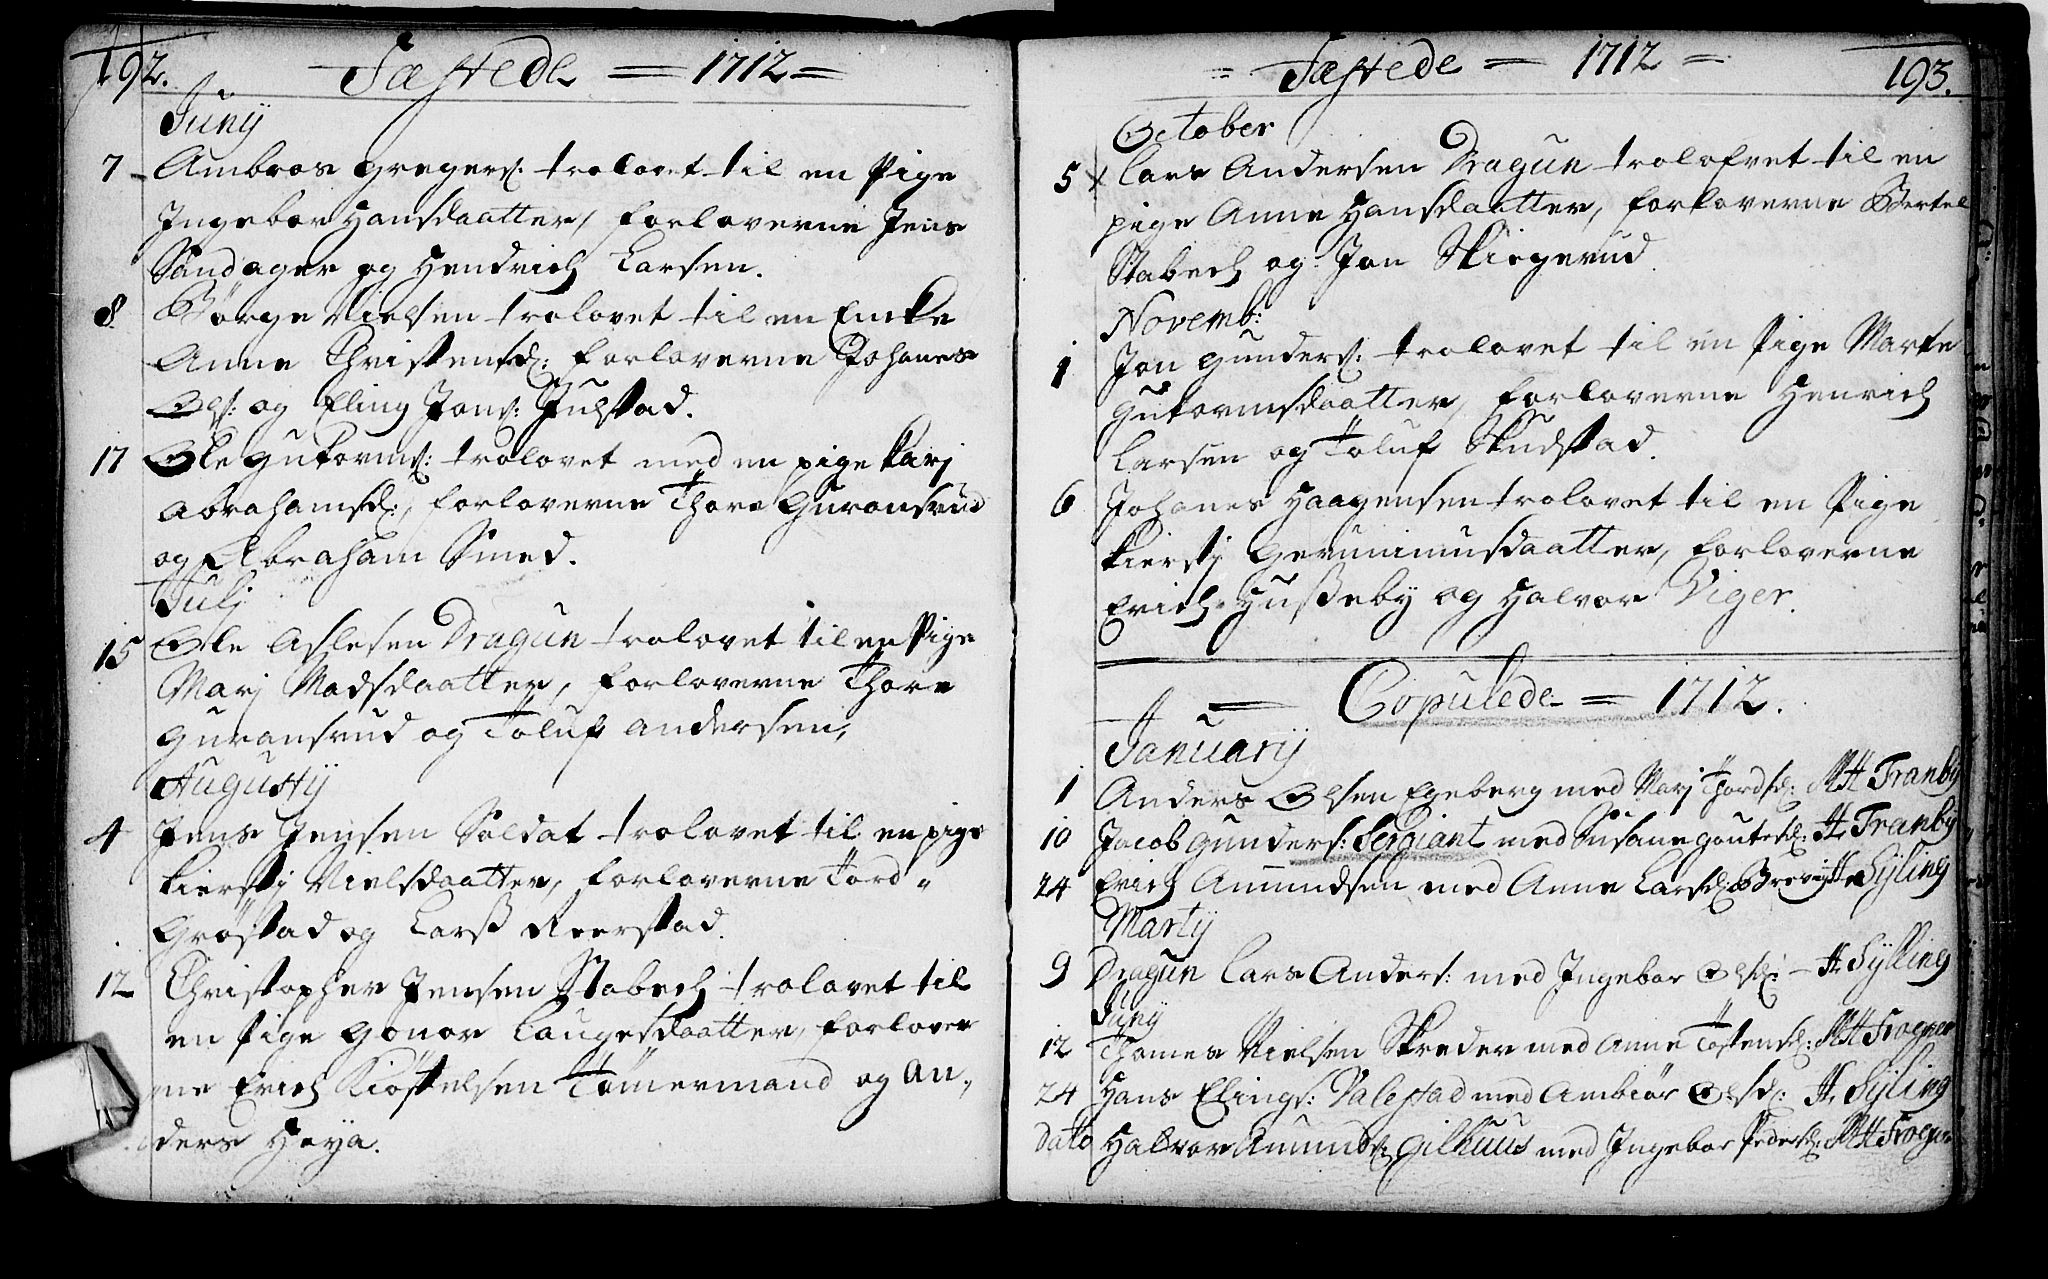 192. Fæstede = 1712 =
Junij
7 Ambros Gregers: trolovet til en Pige
Ingebor Hansdaatter, forloverne Jens
Sandager og Hendrich Larsen.
8. Børge Nielsen trolovet til en Encke
Anne Christensd: forloverne Johanes
Ols: og Eling Jons: Julstad.
17 Ole Gutorms: trolovet med en pige Karj
Abrahamsd:, forloverne Thore Guransrud
og Abraham Smed.
Julj
15 Ole Aslesen Dragun trolovet til en Pige
Marj Madsdaatter, forloverne Thore
Guransrud og Toluf andersen,
Augustij
4 Jens Jensen Soldat trolovet til en pige
Kierstj Nielsdaatter, forloverne Tord
Grøstad og Larss Reerstad.
12 Christopher Jensen Stabech trolovet til
en Pige Gonor Laugesdaatter, forlover
ne Erich Kiøstelsen Tømermand og An,,
ders Høya.
= Fæstede = 1712 = 193.
October
5 x Lars Andersen Dragun trolofvet til en
pige Anne Hansdaatter, forloverne Bertel
Stabech og Jon Skiegerud.
Novemb:
1 Jon Gunders: trolovet til en Pige Marte
Gutormsdaatter, forloverne Henrich
Larsen og Toluf Skudstad.
6 Johanes Haagensen trolovet til en Pige
Kierstj Gerunimusdaatter, forloverne
Erich Husseby og Halvor Viger.
= Copulede = 1712.
Januarij
1 Anders Olsen Egeberg med Marj Thordsd: MH Tranby
10 Jacob Gunders: Sergiant med Susane Goutesd: H Tranby
24 Erich Amundsen med Anne Larsd: H Syling
Martij
9 Dragun Lars Anders: med Ingebor Olsd: – H Sylling
Junij
12 Thomes Nielsen Skreder med Anne Tostensd: MH Frogner
24 Hans Elings: Valestad med Ambiør Olsd: H Syling
dato Halvor Amunds: Gilhuus med Ingebor Pedersd: MH Frogner